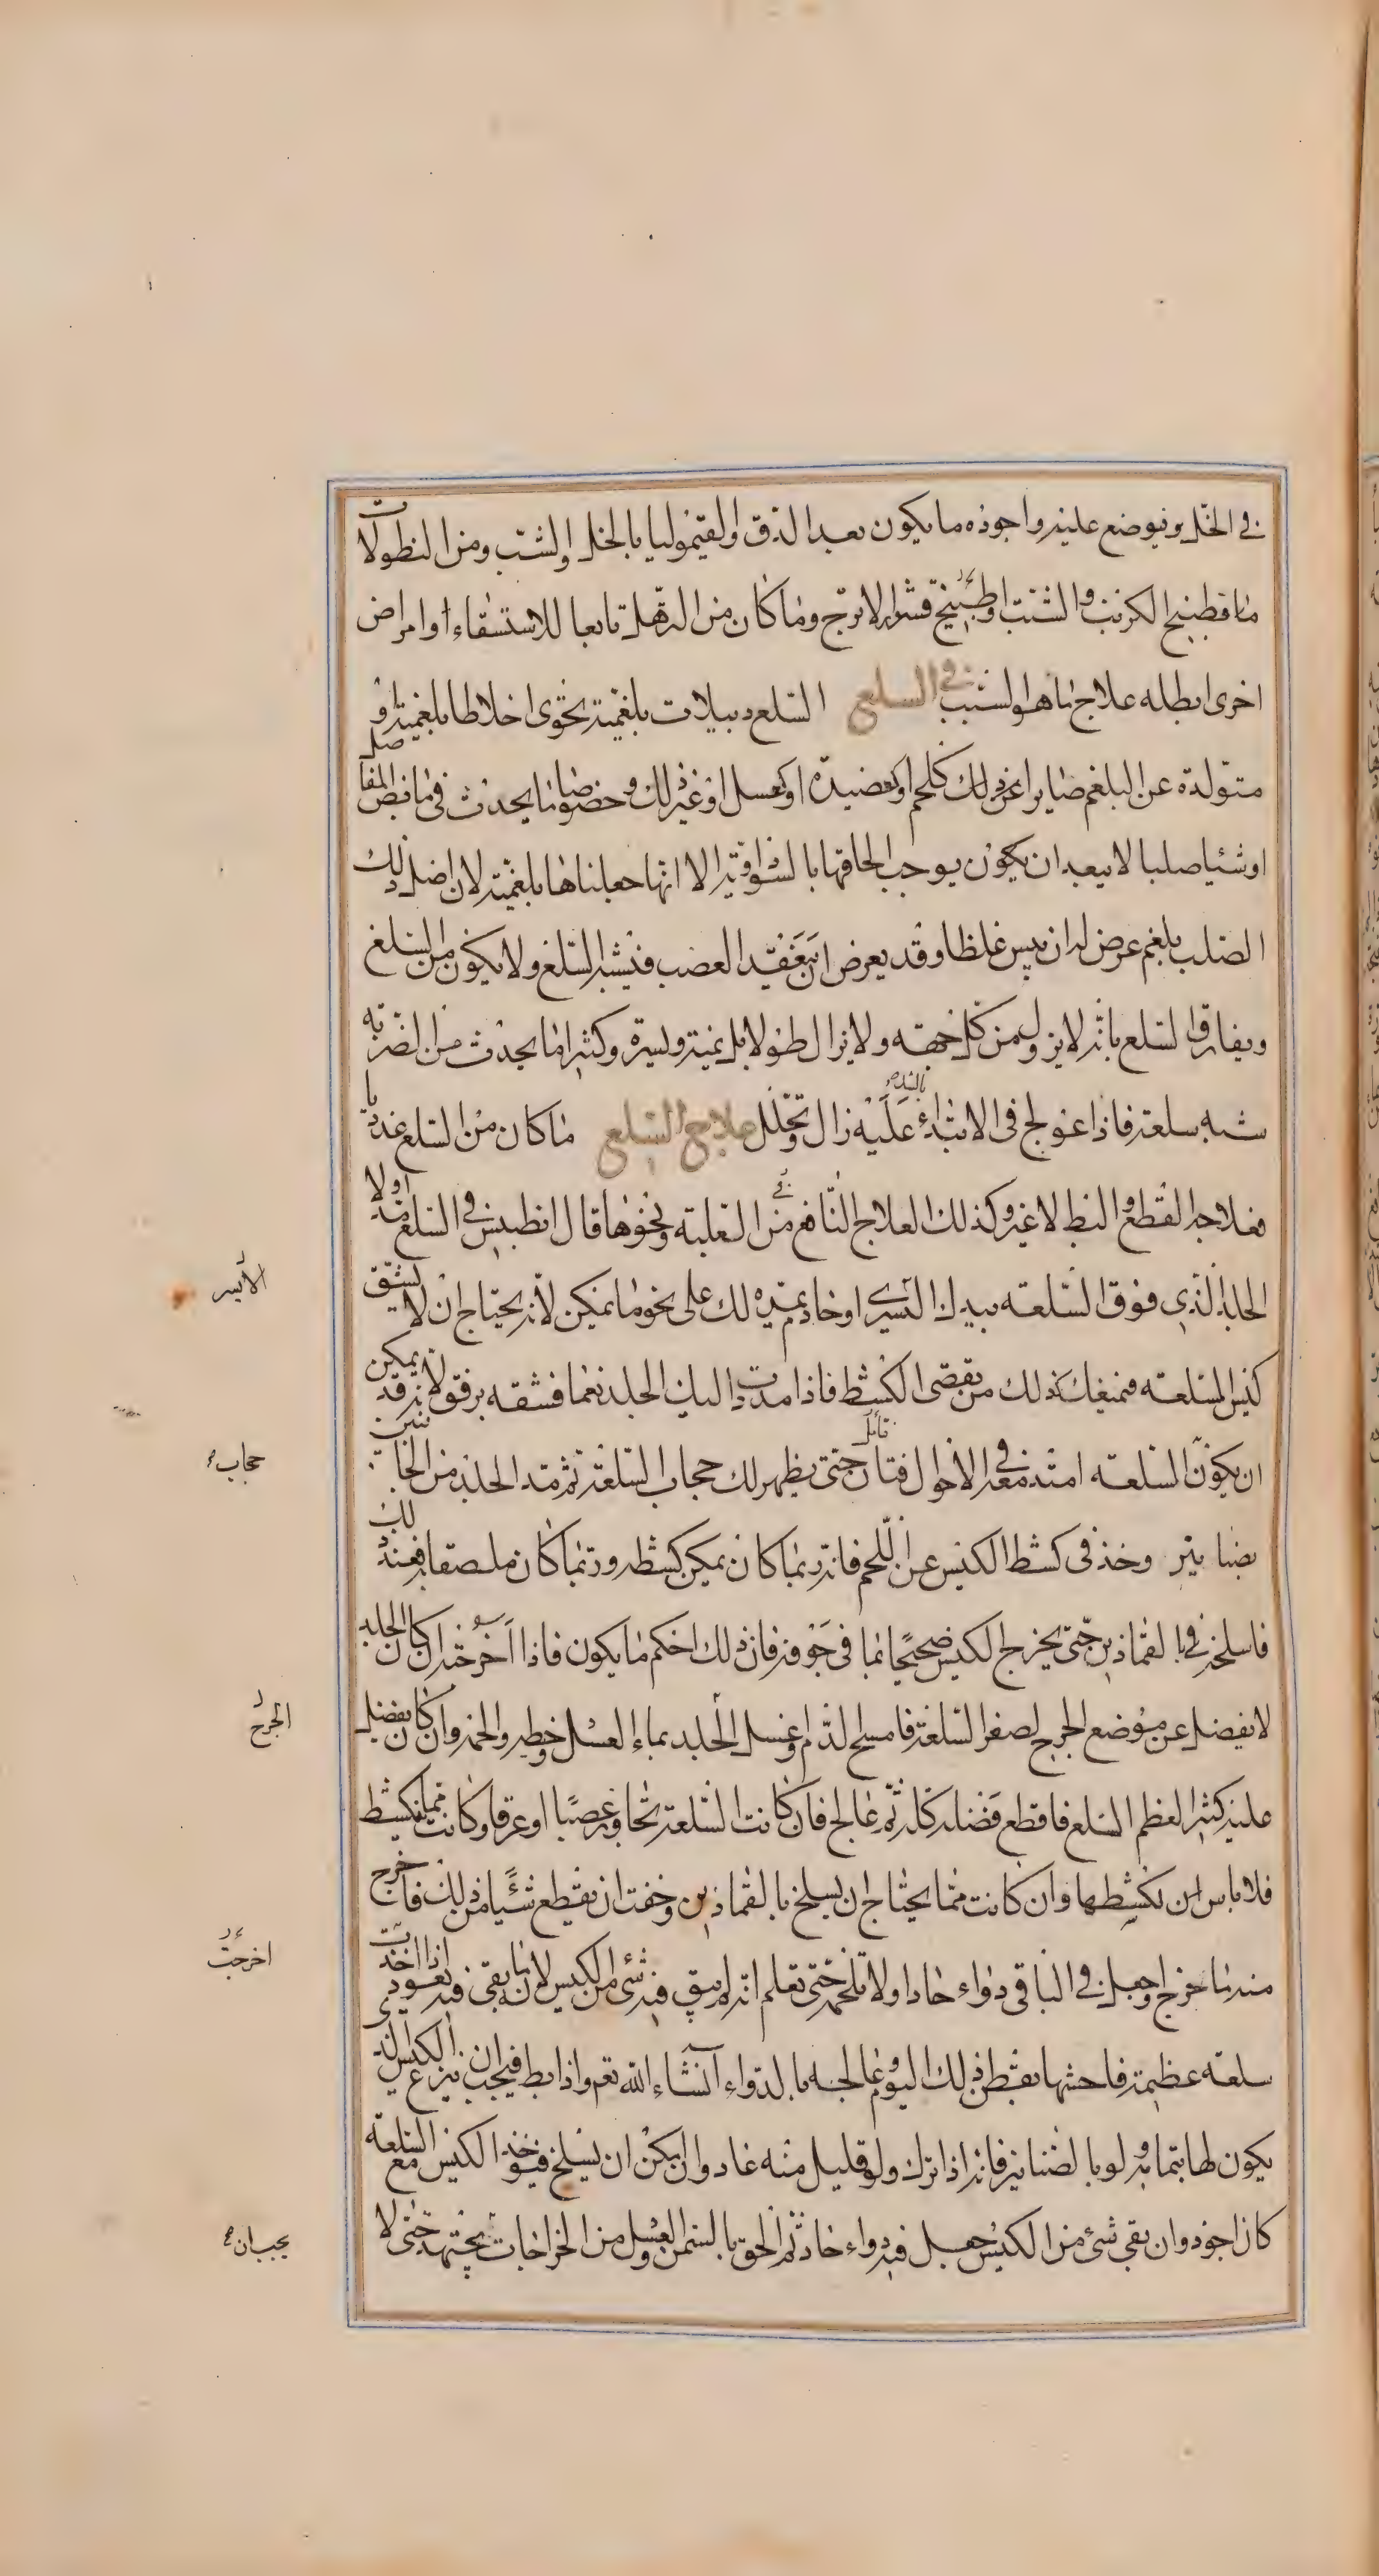 في الخل ويوضع عليه واجوده ما يكون بعد الدق والقيموليا بالخل والشب ومن النطولات
ماء طبيخ الكرنب والشبت او طبيخ قشر الاترج وما كان من الترهل تابعا للاستسقاء او امراض
اخرى ابطله علاج ما هو السبب في السلع السلع دبيلات بلغمية تحوى اخلاطا بلغمية او
متولدة عن البلغم صايرا عن ذلك كلحم او كعصيدة او كعسل او غير ذلك وخصوصا ما يحدث في مابض المفاصل
او شئيا صلبا لا يبعد ان يكون يوجب الحاقها بالسوداوية الا انها جعلناها بلغمية لان اصل ذلك
الصلب بلغم عرض له ان يبس غلظا وقد يعرض ان تعقد العصب فيشبه السلع ولا يكون من السلع
ويفارق السلع بانه لا يزول من كل جهة ولا يزال طولا بل يمنة ويسرة وكثيرا ما يحدث من الضربة
شبه سلعة فاذا عولج في الابتداء بالشد عليه زال وتحلل علاج السلع ما كان من السلع غدديا
فعلاجه القطع والبط لا غير وكذلك العلاج النافع من العلبة ونحوها قال انطيلس في السلع مد اولا
الجلد الذي فوق السلعة بيدك اليسرى او خادم يمده لك على نحو ما يمكن لانه يحتاج ان لا تشق
كيس السلعة فيمنعك ذلك من تقصى الكشط فاذا مددت اليك الجلد نعما فشقه برفق لانه قد يمكن
ان يكون السلعة امتد معه في الاحوال فتان قائل حتى يظهر لك حجاب السلعة ثم تمد الجلد من الجانبين
بصنانير وخذ في كشط الكيس عن اللحم فانه ربما كان يمكن كشطه وربما كان ملصقا به فعند ذلك
فاسلخه بالقماذين حتى يخرج الكيس صحيحا بما في جوفه فان ذلك احكم ما يكون فاذا اخرجته ان كان الجلد
لا يفضل عن موضع الجرح لصغر السلعة فامسح الدم واغسل الجلد بماء العسل وخطه والحمه وان كان يفضل
عليه كثيرا لعظم السلع فاقطع فضله كله ثم عالج فان كانت السلعة تجاور عصبا او عرقا وكانت مما ينكشط
فلا باس ان تكشطها وان كانت مما يحتاج ان يسلخ بالقماذين وخفت ان يقطع شئيا من ذلك فاخرج
منه ما خرج واجعل في الباقي دواء حادا ولا تلحمه حتى تعلم انه لم يبق فيه شئ من الكيس لانه ما بقى فيه يعود اذا اخذت
سلعة عظيمة فاحشها بقطن ذلك اليوم وعالجه بالدواء آنشاء الله تع واذا بط فيجب ان ينزع الكيس الذي
يكون لها بتمامه ولو بالصنانير فانه اذا ترك ولو قليل منه عاد وان امكن ان يسلخ فيوخذ الكيس مع السلعة
كان اجود وان بقى شئ من الكيس جعل فيه دواء حاد ثم الحق بالسمن والعسل من الخراجات يجتهد حتى لا
الأيسر
حجاب
الجرح
اخرجت
يجب ان